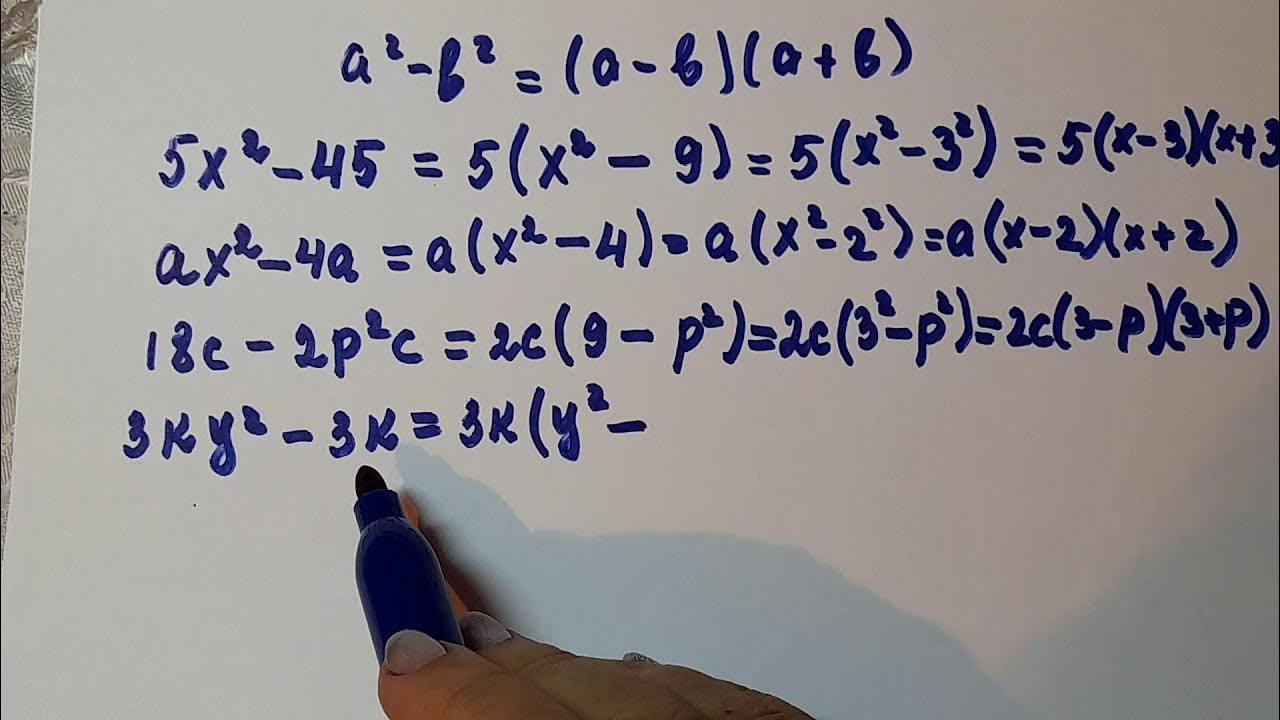 a² - b² = (a - b)(a + b)
5x² - 45 = 5(x² - 9) = 5(x² - 3²) = 5(x - 3)(x + 3
ax² - 4a = a(x² - 4) = a(x² - 2²) = a(x - 2)(x + 2)
18c - 2p²c = 2c(9 - p²) = 2c(3² - p²) = 2c(3 - p)(3 + p)
3ky² - 3k = 3k(y² -